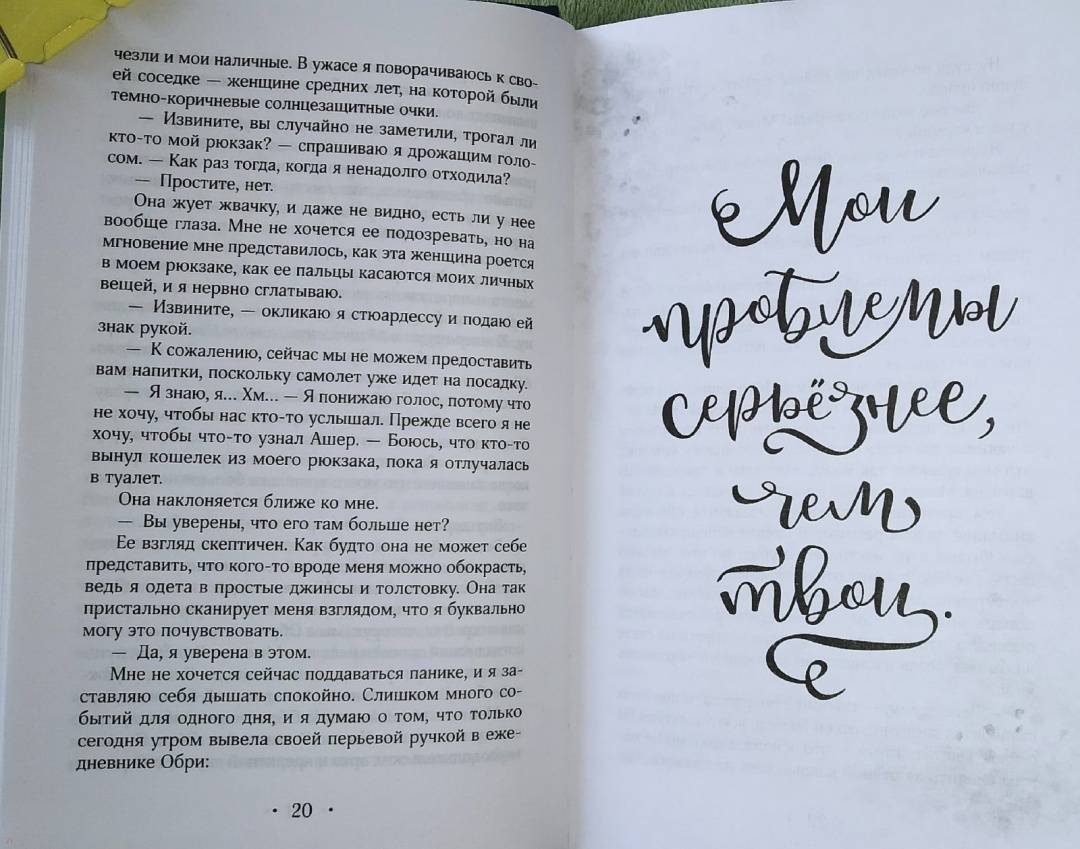 чезли и мои наличные. В ужасе я поворачиваюсь к сво-
ей соседке — женщине средних лет, на которой были
темно-коричневые солнцезащитные очки.
— Извините, вы случайно не заметили, трогал ли
кто-то мой рюкзак? — спрашиваю я дрожащим голо-
сом. — Как раз тогда, когда я ненадолго отходила?
— Простите, нет.
Она жует жвачку, и даже не видно, есть ли у нее
вообще глаза. Мне не хочется ее подозревать, но на
мгновение мне представилось, как эта женщина роется
в моем рюкзаке, как ее пальцы касаются моих личных
вещей, и я нервно сглатываю.
— Извините, — окликаю я стюардессу и подаю ей
знак рукой.
— К сожалению, сейчас мы не можем предоставить
вам напитки, поскольку самолет уже идет на посадку.
— Я знаю, я... Хм... — Я понижаю голос, потому что
не хочу, чтобы нас кто-то услышал. Прежде всего я не
хочу, чтобы что-то узнал Ашер. — Боюсь, что кто-то
вынул кошелек из моего рюкзака, пока я отлучалась
в туалет.
Она наклоняется ближе ко мне.
— Вы уверены, что его там больше нет?
Ее взгляд скептичен. Как будто она не может себе
представить, что кого-то вроде меня можно обокрасть,
ведь я одета в простые джинсы и толстовку. Она так
пристально сканирует меня взглядом, что я буквально
могу это почувствовать.
— Да, я уверена в этом.
Мне не хочется сейчас поддаваться панике, и я за-
ставляю себя дышать спокойно. Слишком много со-
бытий для одного дня, и я думаю о том, что только
сегодня утром вывела своей перьевой ручкой в еже-
дневнике Обри:
• 20 •
Мои
проблемы
серьёзнее,
чем
твои.